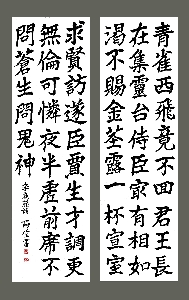 青雀西飛竟不回君王長
在集靈台侍臣冣有相如
渴不賜金茎露一杯宣室
求賢訪逐臣賈生才調更
無倫可憐夜半虛前席不
問蒼生問鬼神
李商隱詩